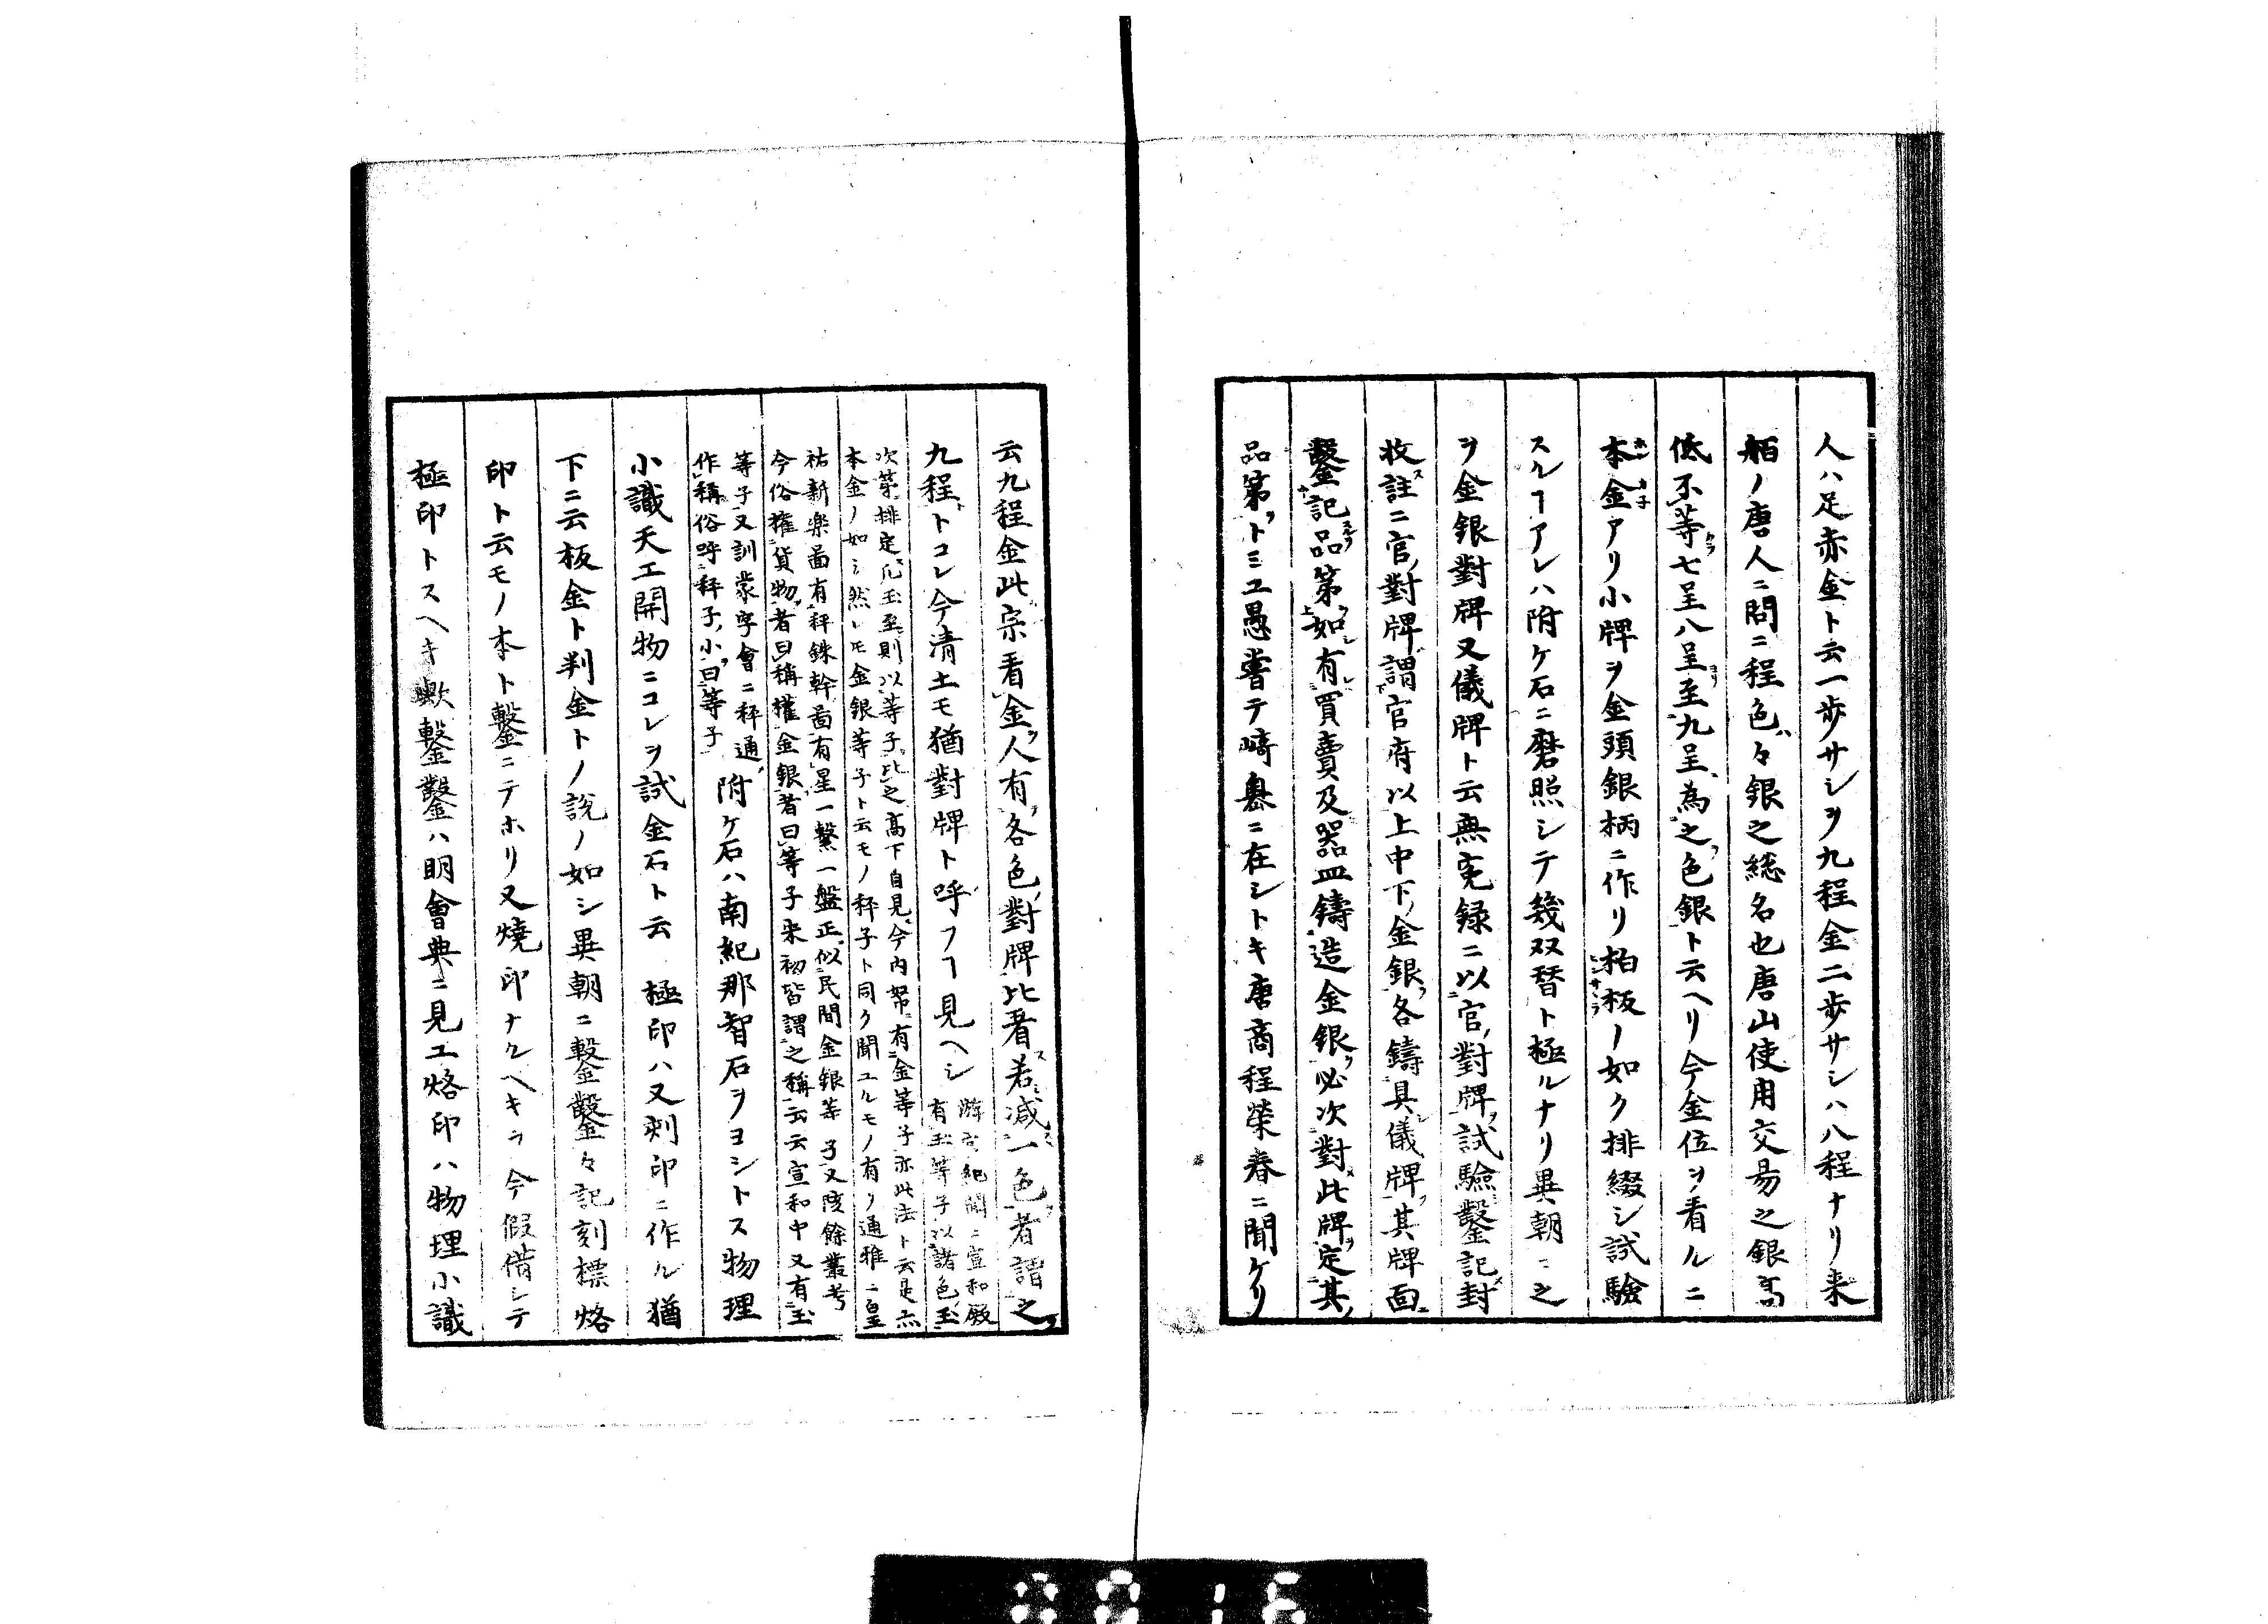 人ハ足赤金ト云一歩サシヲ九程金二歩サシハ八程ナリ来
舶ノ唐人ニ問ニ程色ハ々銀之総名也唐山使用交易之銀高
低不等七呈八呈至九呈為之色銀ト云ヘリ今金位ヲ看ルニ
本金アリ小牌ヲ金頭銀柄ニ作リ柏板ノ如ク排綴シ試驗
スルヿアレハ附ケ石ニ磨照シテ幾双替ト極ルナリ異朝ニ之
ヲ金銀對牌又儀牌ト云無寃録ニ以官對牌試驗鑿記封
收註ニ官對牌謂官府以上中下金銀各鑄具儀牌其牌面
鑿記品第如有買賣及器皿鑄造金銀必次對此牌定其
品第トミユ愚嘗テ崎嶴ニ在シトキ唐商程榮春ニ聞ケリ
云九程金此宗看金人有各色對牌比著若减一色者謂之
九程トコレ今清土モ猶對牌ト呼フヿ見ヘシ
游宦紀聞ニ宣和殿
有玉等子以諸色玉
次第排定凡玉至則以等子比之高下自見今内帑有金等子亦此法ト云是亦
本金ノ如シ然レモ金銀等子ト云モノ秤子ト同ク聞ユルモノ有リ通雅ニ皇
祐新楽圖有秤銖幹圖有星一繫一盤正似民間金銀等子又陔餘叢考
今俗權貨物者曰稱權金銀者曰等子宋初皆謂之稱云云宣和中又有玉
等子又訓蒙字會ニ秤通
作稱俗呼秤子小曰等子
附ケ石ハ南紀那智石ヲヨシトス物理
小識天工開物ニコレヲ試金石ト云 極印ハ又刺印ニ作ル猶
下ニ云板金ト判金トノ説ノ如シ異朝ニ鏨鑿々記刻標烙
印ト云モノ本ト鏨ニテホリ又燒印ナクヘキヲ今假借シテ
極印トスヘキ歟鏨鑿ハ明會典ニ見エ烙印ハ物理小識